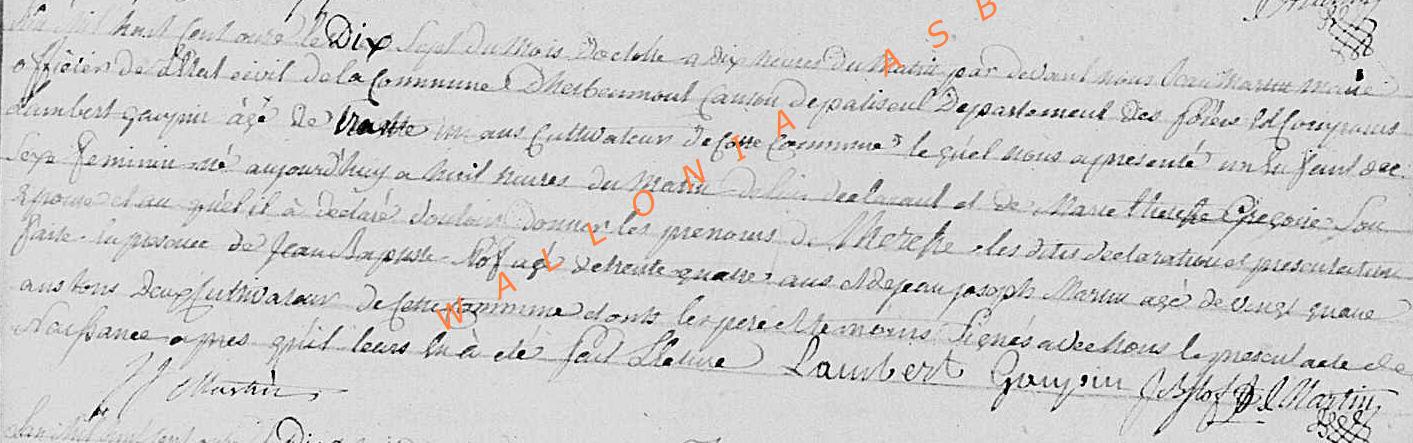 L'an mil huit cent onze le Dix Sept du mois D'octobre a Dix heures du Matin par devant nous Jean Martin maire
officier de L'Etat civil de la Commune D'herbeumont Canton de paliseul Departement des forêts Est Comparus
Lambert Goupin âgé de trente un ans Cultivateur De Cette Commune lequel nous a presenté un Enfant de
Sexe feminin né aujourd'huy a huit heures du Matin de lui declarant et de Marie Therese Gregoire Son
Epouse et au quel il à declaré vouloir donner les prenoms de Therese. les dites declaration et presentation
faite en presence de Jean Baptiste agé de trente quatre ans et de jean joseph Martin agé de vingt quatre
ans tous Deux Cultivateur de Cette Commune et ont les pere et temoins Signés avec Nous le present acte de
Naissance apres qu'il leurs en à eté fait Lecture Lambert Goupin J J Martin
J Martin
WALLONIA ASB